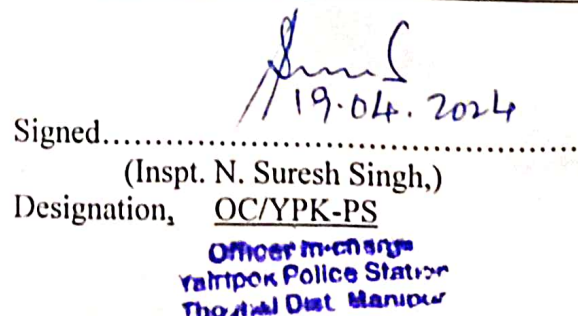 19.04.2024
Signed..................................................
(Inspt. N. Suresh Singh,)
Designation, OC/YPK-PS
Officer in-charge
Yairipok Police Station
Thoubal Dist. Manipur